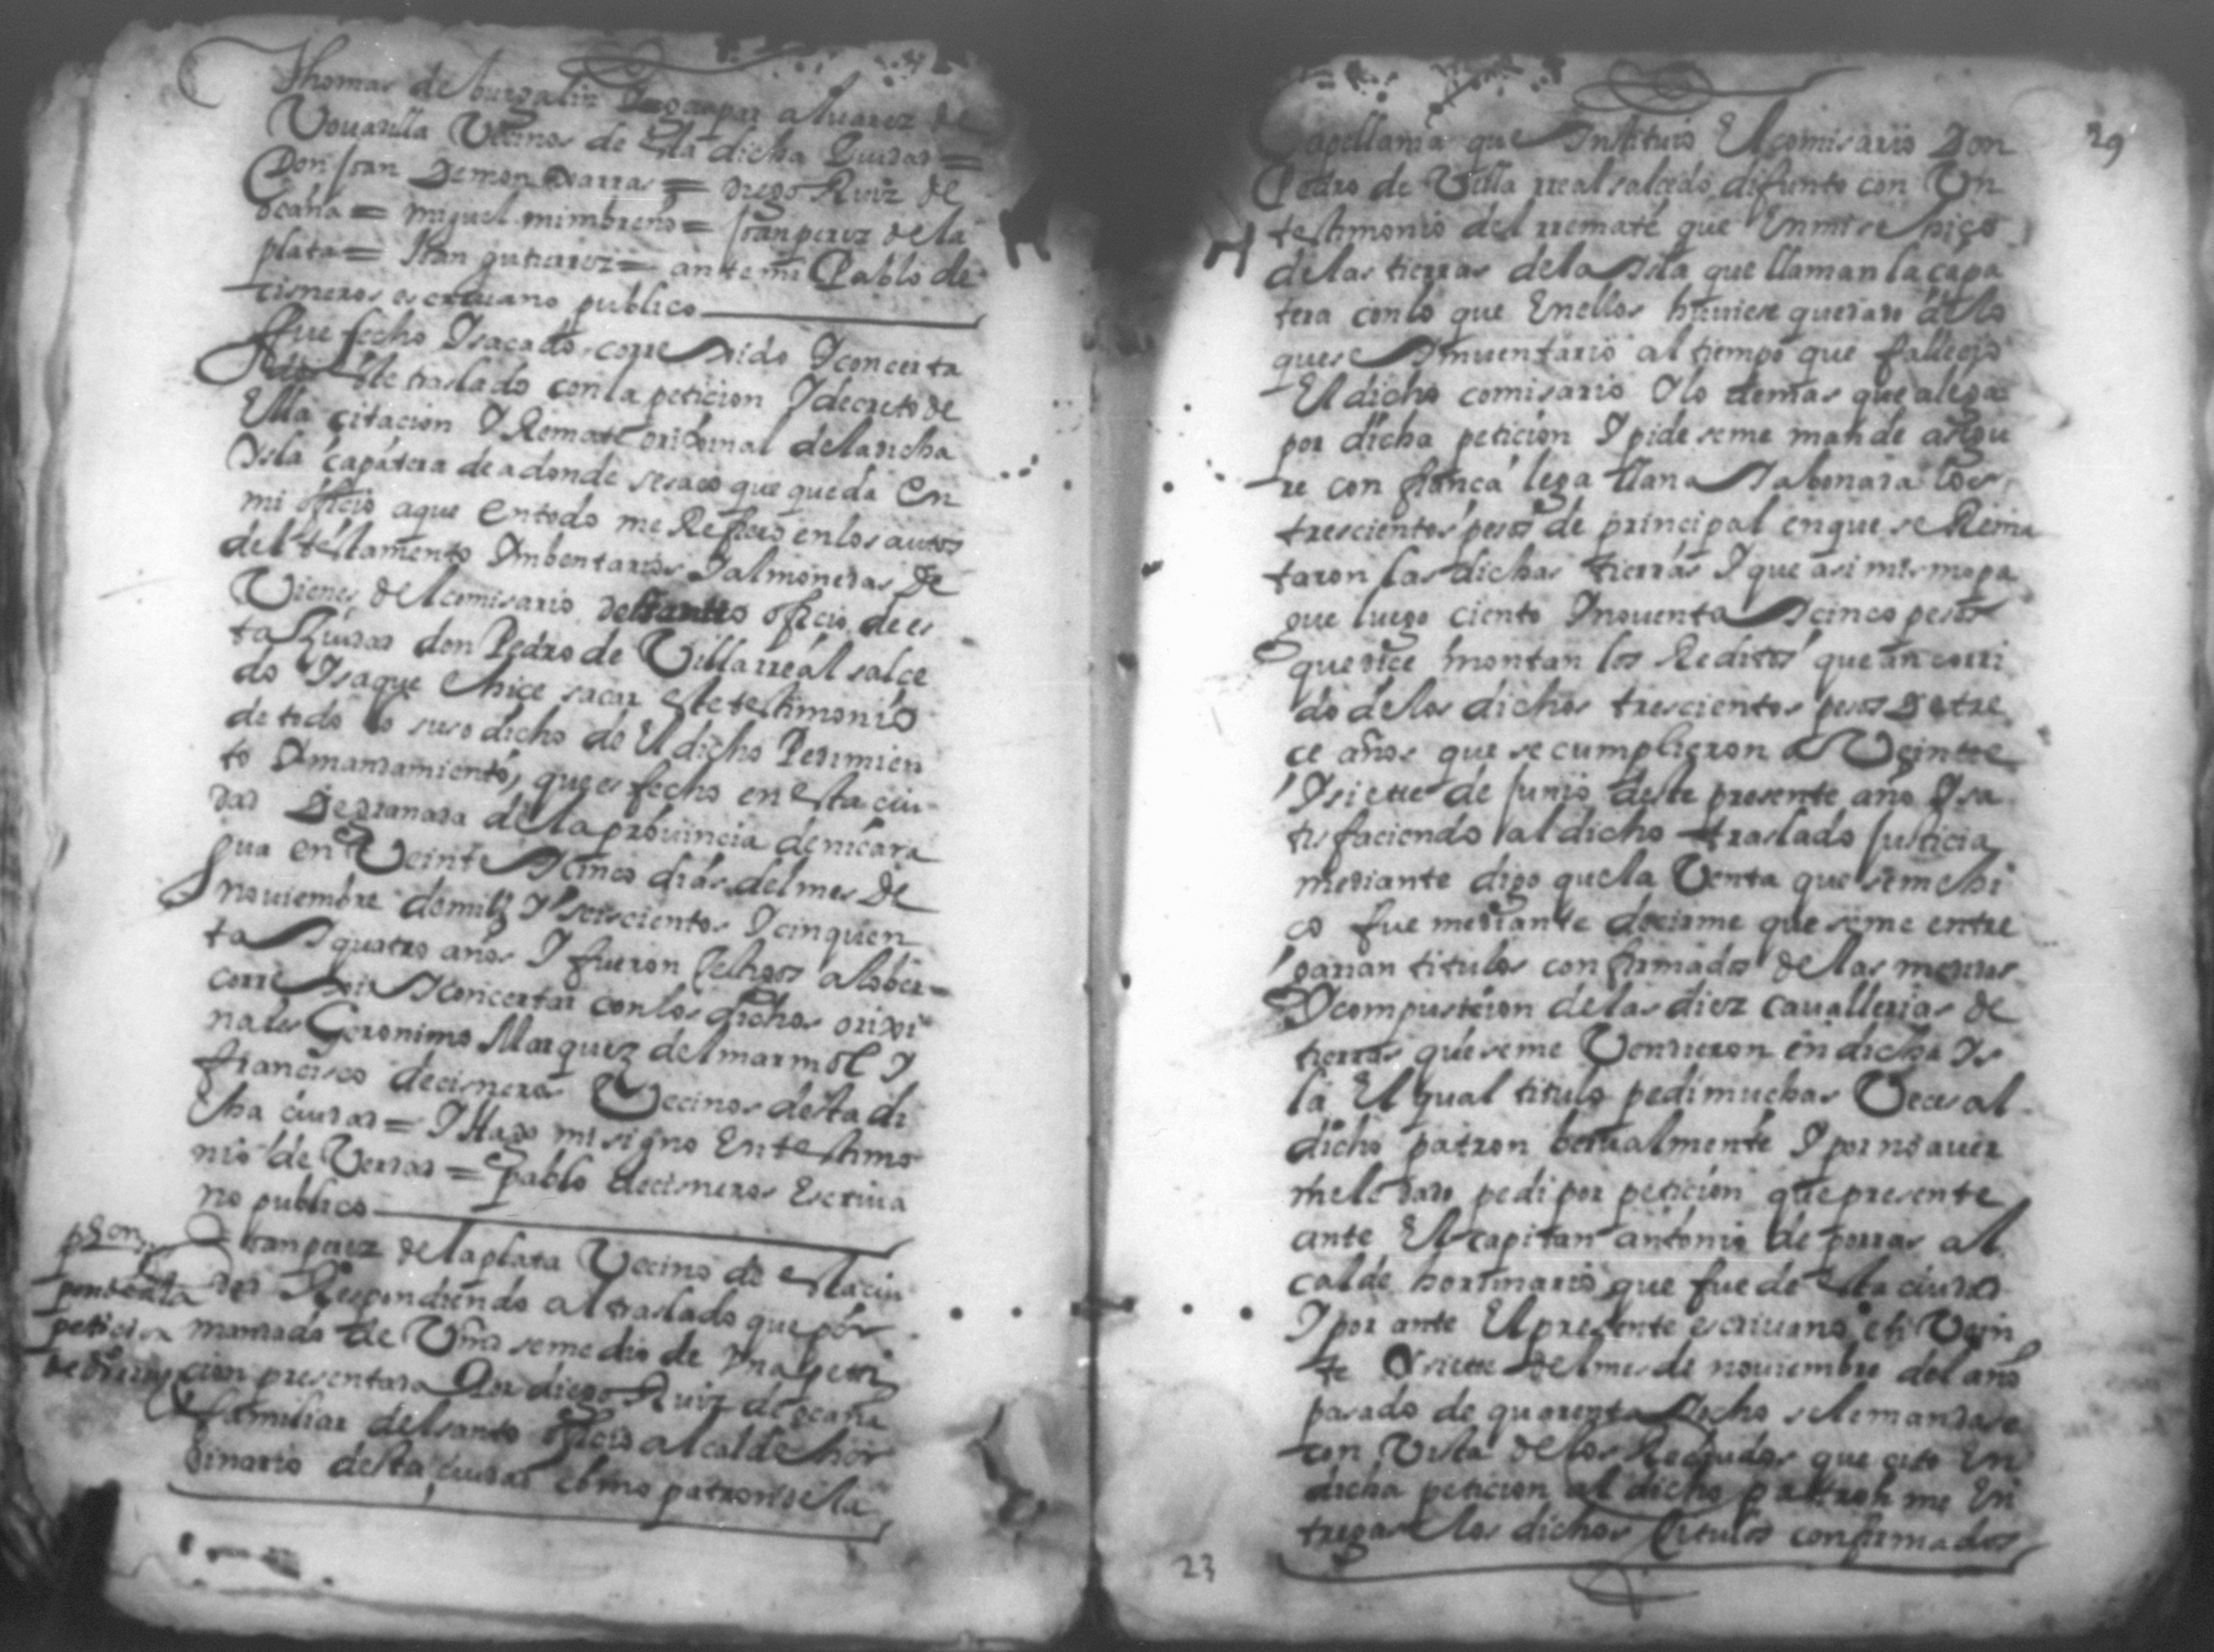 Thomas de burgalin I gaspar aluarez de
Vouadilla Vecinos de esta dicha Ciudad =
Don Joan Demendo = diego Ruiz de
ocaña = miguel mimbreño = Joan perez de la
plata = Joan gutierrez = ante mi Pablo de
cisneros escriuano publico
ffue fecho I sacado corregido I concerta
do este traslado con la peticion I decreto de
Ella citacion I Remate original de la dicha
Ysla çapatera de adonde se saco que queda En
mi oficio a que En todo me Refiero en los autos
del testamento Imbentarios I almonedas de
Vienes del comisario del santo oficio de es
ta Ciudad don Pedro de Villarreal salce
do I saque E hice sacar este testimonio
de todo lo suso dicho de El dicho Pedimien
to I mandamiento, que es fecho en esta ciu
dad De granada de la prouincia de nicara
gua en Veinte I Cinco dias del mes de
nouiembre de mill I seiscientos I cinquen
ta I quatro años I fueron testigos a lo ber
corregir I concertar con los dichos origi
nales Geronimo Marquez del marmol I
francisco de cisneros Vecinos desta di
cha ciudad = I Hago mi signo En testimo
nio de Verdad = pablo de cisneros Escriua
no publico
Joan perez de la plata Vecino de esta ciu
dad Respondiendo al traslado que por
mandado de Vmd se me dio de Vna peti
cion presentada Por diego Ruiz de ocaña
familiar del santo oficio alcalde hor
dinario desta ciudad como patron de la
29
Capellania que Instituio El comisario Don
Pedro de Villa rreal salcedo difunto con Vn
testimonio del rremate que En mi se hiço
de las tierras de la Isla que llaman la çapa
tera con lo que En ellos huuiese quedado de lo
que se Inuentario al tiempo que fallecio
El dicho comisario I lo demas que alega
por dicha peticion I pide se me mande asegu
re con fiança lega llana I abonada los
trescientos pesos de principal en que se Rema
taron las dichas tierras I que asi mismo pa
gue luego ciento I nouenta I cinco pesos
que dice montan los Reditos que an corri
do de los dichos trescientos pesos De tre
ce años que se cumplieron a Veinte
I siette de Junio deste presente año I sa
tisfaciendo al dicho traslado Justicia
mediante digo que la Venta que se me hi
ço fue mediante decirme que se me entre
garian titulos confirmados de las medidas
I composicion de las diez cauallerias de
tierras que se me Vendieron en dicha Is
la El qual titulo pedi muchas Veces al
dicho patron berualmente I por no auer
mele dado pedi por peticion que presente
ante El capitan antonio de porras al
calde hordinario que fue de esta ciudad
I por ante El presente escriuano en Vein
te I siette del mes de nouiembre del año
pasado de quarenta I ocho se le mandase
con Vista de los Recaudos que cito En
dicha peticion al dicho patron me En
tregase los dichos titulos confirmados
23